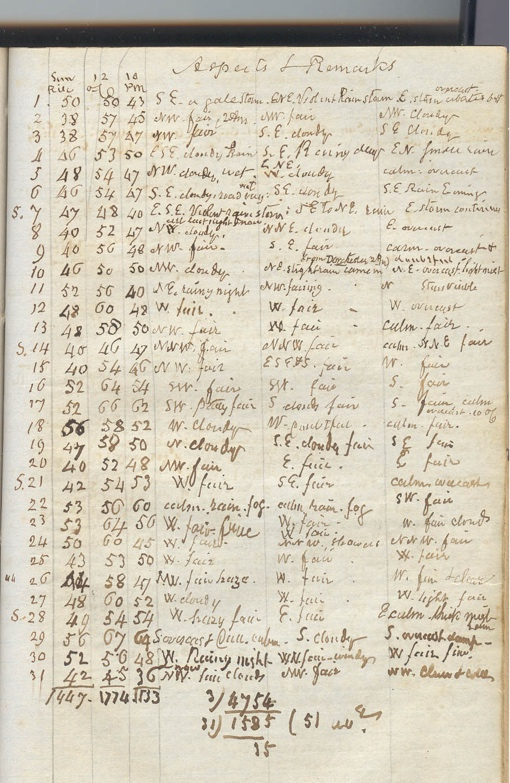 Aspects & Remarks
Sun Rise 12 10 PM
overcast
1. 50 50 43 S.E. a gale storm. E.N.E. Violent Rain storm E. storm abates but
2 38 57 45 N.W. fair, N.W. fair N.W. Cloudy
3 38 57 47 N.W. fair S.E. cloudy S.E. Cloudy
4 46 53 50 E.S.E. cloudy Rain S. E. Rainy day E.N. Small rain
E.N.E.
5 48 54 47 N.W. cloudy, wet. W. cloudy calm. overcast
6 46 54 47 S.E. cloudy. S.E. cloudy S.E. Rain
S. 7 47 48 40 E.S.E. Violent storm S.E. to N.E. rain E. storm continues
8 40 52 47 N.W. cloudy. N.N.E. cloudy E. overcast
9 40 56 48 N.W. fair. S. E. fair calm. overcast &
from Dorchester
10 46 50 50 N.W. cloudy N.E. slight rain came in N.E. overcast light mist
11 52 56 40 N.E. rainy night N.W. fairing. N Stars visible
12 48 60 48 W. fair. W. fair W. overcast
13 48 58 50 N.W. fair W. fair calm. fair.
S. 14 40 46 47 N.N.W. fair N.N.W. fair calm. N.N.E fair
15 40 54 46 N.W. fair fair W. fair
16 52 64 54 S.W. fair S.W. fair S. fair
17 52 66 62 S.W. fair S clouds fair S. fair calm
18 56 58 52 W. cloudy W. calm. fair.
19 47 58 50 N. cloudy S.E. clouds fair S E fair
20 40 52 48 N.W. fair E. fair. E fair
S. 21 42 54 53 W. fair S.E. fair calm overcast
22 53 56 60 calm. rain. fog calm rain. fog S.W. fair
23 53 64 56 W. fair fine W. fair. W. fair clouds
24 50 60 45 W. fair N.N.W. showers N.N.W. fair
25 43 53 50 W. fair W. fair W. fair
26 44 58 47 N.W. fair haze. W. fair W. fair & clear
27 48 60 52 W. cloudy W. fair W. light fair
S. 28 49 54 54 W. hazy fair E. fair E calm thick
29 56 67 64 S overcast calm. S. cloudy S. overcast damp
30 52 56 48 W. Rainy night W.W. fair windy W fair fine
31 42 45 36 N.W. fair clouds N.W. fair N.W. Clear &
1447. 1774 1533
3) 4754
31) 1585 ( 51
35